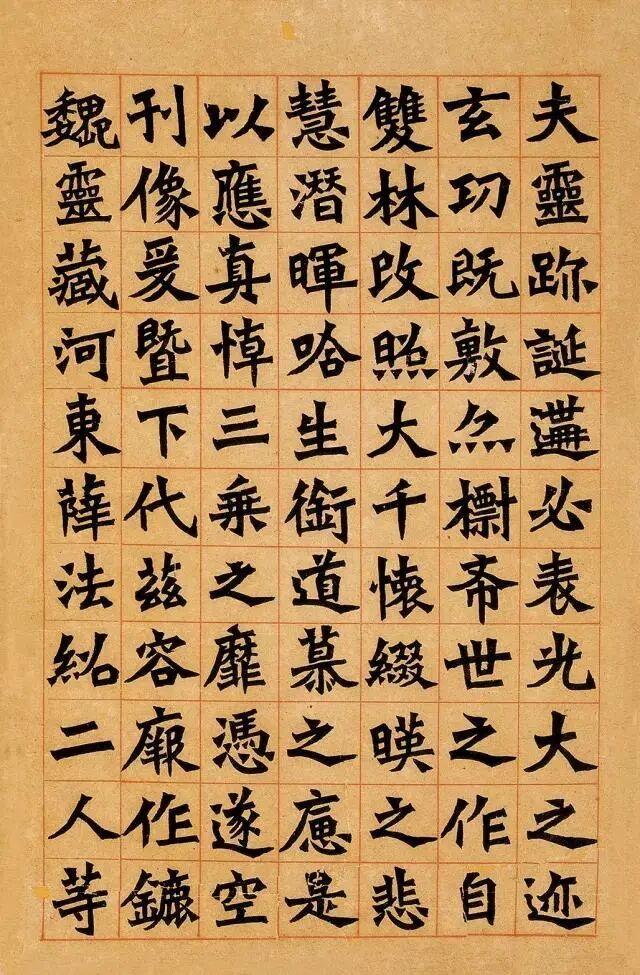 夫靈跡誕遘必表光大之迹
玄功既敷亦摽希世之作自
雙林改照大千懷綴暎之悲
慧潛暉唅生銜道慕之是
以應真悼三乘之靡憑遂空
刊像爰暨下代茲容厥作鏕
魏靈藏河東薛法紹二人等